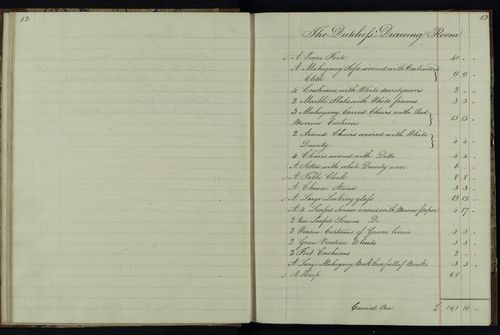 12
13
The Dutchess' Drawing Room
A Piano Forte 40 - -
A Mahogany Sofa covered with
Cloth 9 9 -
4 Cushions with White dimity covers 2 - -
2 Marble Slabs with White frames 3 3 -
3 Mahogany Carved Chairs with Red
Morocco Cushions 15 15 -
2 Armed Chairs covered with White
Dimity 4 4 -
4 Chairs covered with Ditto 4 4 -
A Settee with white Dimity cover 6 - -
A Table Clock 8 8 -
A Chinese Stand 3 3 -
A Large Looking glass 12 12 -
A 4 Leafed Screen covered with Morocco paper 4 17 -
2 two Leafed Screens Do
2 Window Curtains of Green linen 3 3 -
2 Green Venetian Blinds 3 3 -
2 Foot Cushions 2 - -
A Large Mahogany Book Case full of Books 3 3 -
A Harp 60
Carried Over £ 191 10 -